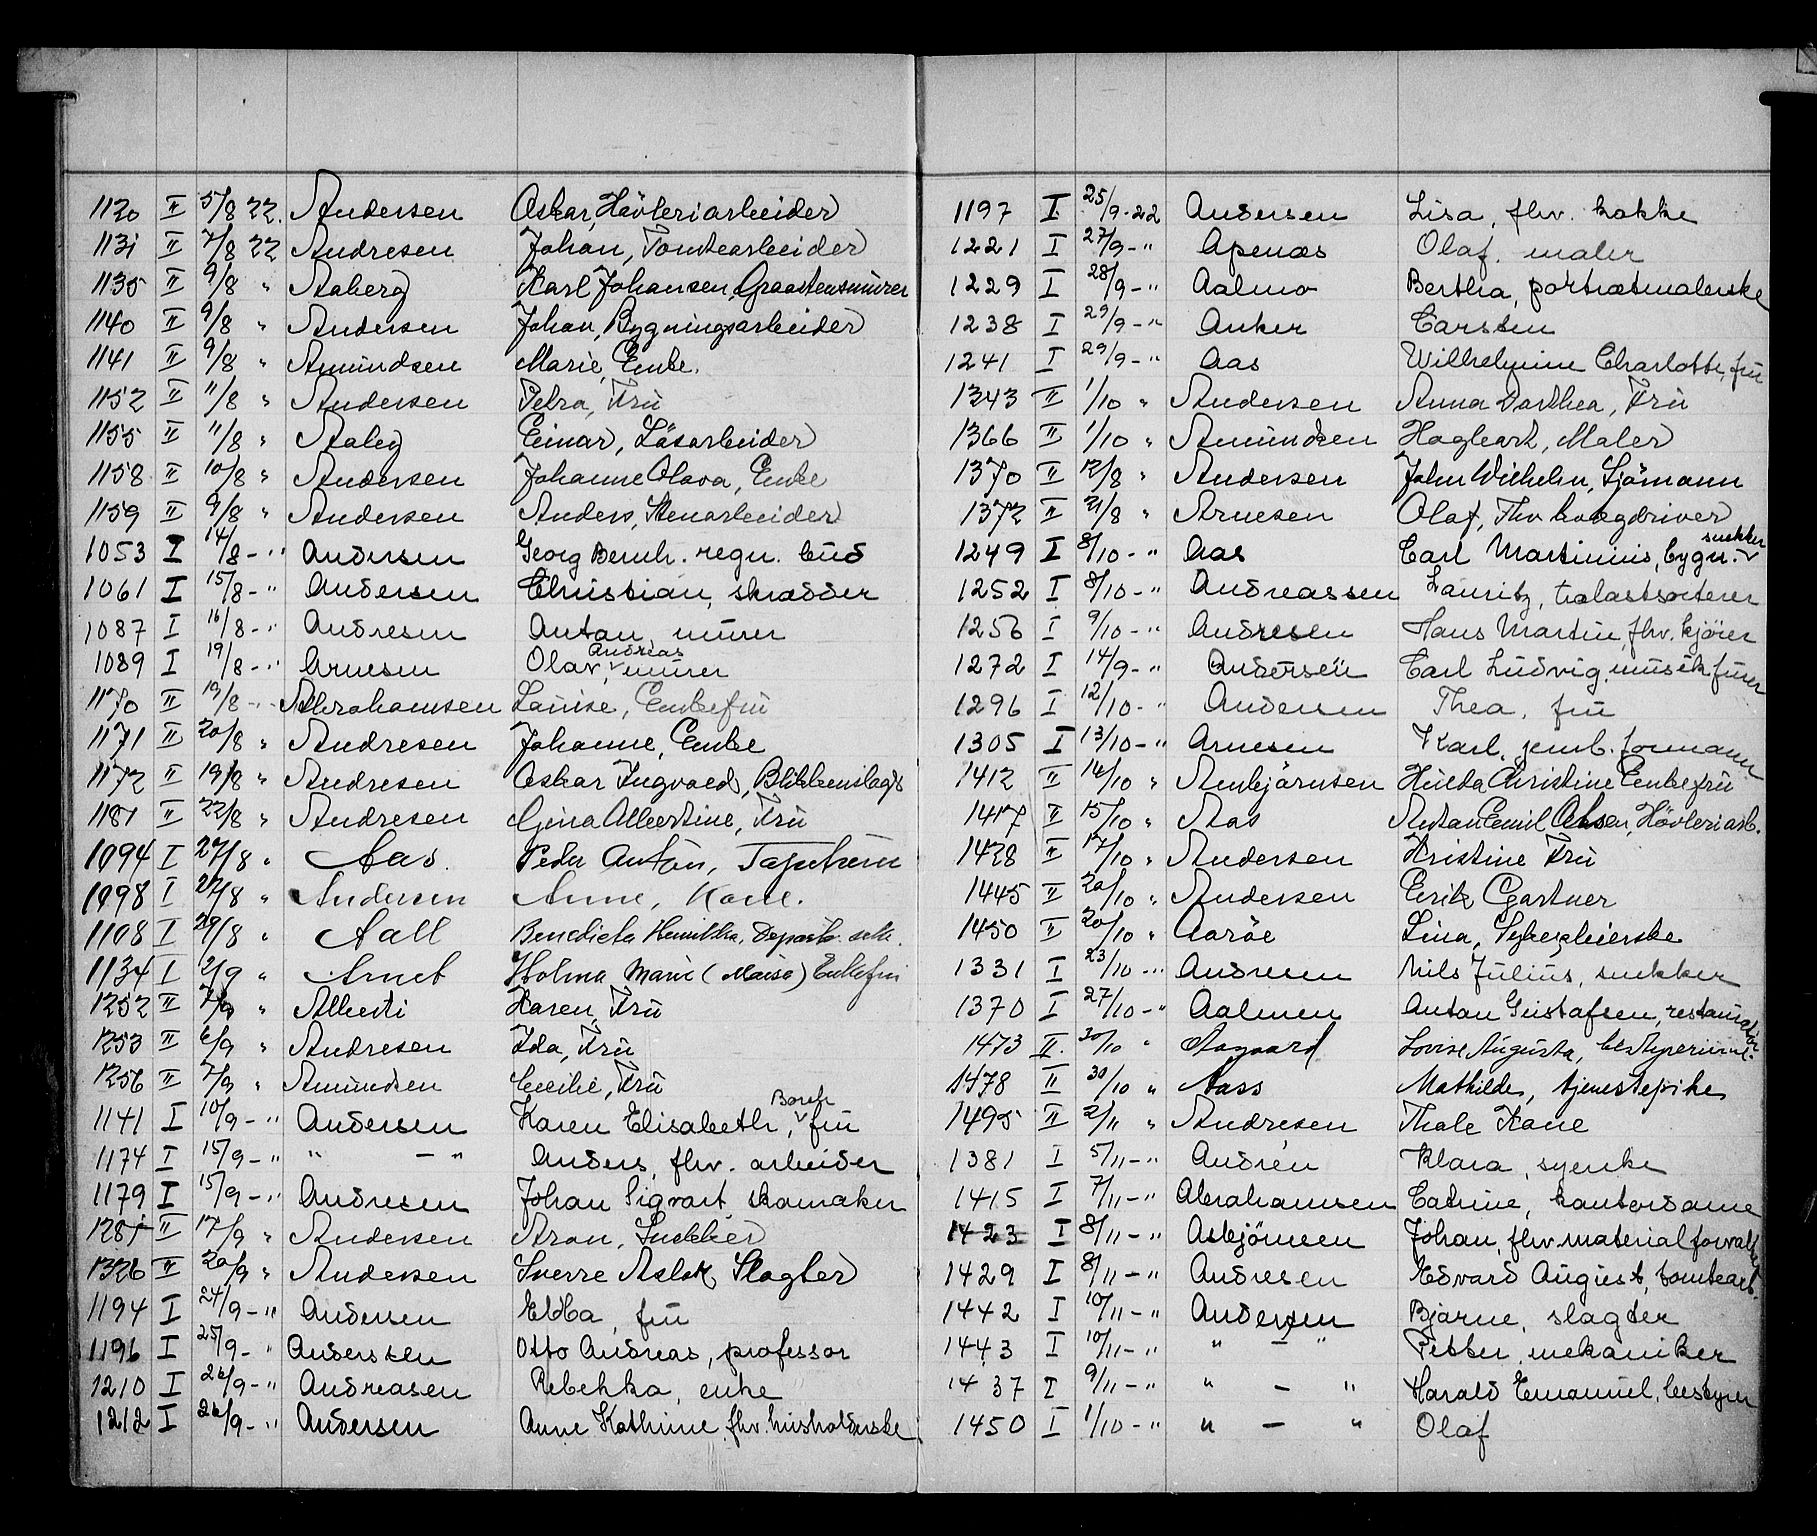 1120 II 5/8 22. Andersen Oskar, Høvleriarbeider
1131 II 7/8 22 Andresen Johan, Tomtearbeider
1135 II 9/8 " Aaberg Karl Johansen, Graastensmurer
1140 II 9/8 " Andersen Johan, Bygningsarbeider
1141 II 9/8 " Amundsen Marie, Enke.
1152 II 11/8 " Andersen Petra, Fru
1155 II 11/8 " Aaby Einar, Løsarbeider
1158 II 10/8 " Andersen Johanne Olava, Enke
1159 II 9/8 " Andersen Anders, Stenarbeider
1053 I 14/8 - " Andersen Georg Bernh. regn. bud
1061 I 15/8 - " Andersen Christian, skrædder
1087 I 16/8 - " Andresen Anton, murer
1089 I 19/8 - " Arnesen Olav, Andreas murer
1170 II 19/8 - " Abrahamsen Louise, Enkefru
1171 II 20/8 " Andresen Johanne, Enke
1172 II 19/8 " Andresen Oskar Ingvald, Blikkenslag
1181 II 22/8 " Andresen Gina Albertine, Fru
1094 I 27/8 " Aas. Peder Anton, Tapetserer
1098 I 27/8 " Andersen Anne, Kone.
1108 I 29/8 " Aall Benedicta Departb. sek.
1134 I 2/9 " Arnet Holma Marie (Maisa) Enkefru
1252 II 7/9 " Alberti Karen, Fru
1253 II 6/9 " Andresen Ida, Fru
1256 II 7/9 " Amundsen Cecilie, Fru
1141 I 10/9 - " Andersen Karen Elisabeth, Borch fru
1174 I 15/9 - " " - " Anders, fhv. arbeider
1179 I 15/9 - " Andresen Johan Sigvart, skomaker
1287 II 17/9 " Andersen Aron, Snekker
1326 II 20/9 " Andersen Sverre Aslak, Slagter
1194 I 24/9 - " Andersen Ebba, fru
1196 I 25/9 - " Anderssen Otto Andreas, professor
1210 I 26/9 - " Andreasen Rebekka, enke
1212 I 26/9 - " Andersen Anne Kathrine, fhv. husholderske
1197 I 25/9 - 22 Andersen Lisa, fhv. kokke
1221 I 27/9 - " Apenæs Olaf, maler
1229 I 28/9 - " Aalmo Bertha, portrætmalerske
1238 I 29/9 - " Anker Carsten
1241 I 29/9 - " Aas Wilhelmine Charlotte, fru
1343 II 1/10 " Andersen Anna Dorthea, Fru
1366 II 1/10 " Amundsen Hagbart, Maler
1370 II 12/8 " Andersen John Wilhelm, Sjømann
1372 II 21/8 " Arnesen Olaf, Fhv. haugdriver
1249 I 8/10 - " Aas Carl Martinius, bygn. snekker
1252 I 8/10 - " Andreassen Lauritz, trælastsorterer
1256 I 9/10 - " Andresen Hans Martin, fhv. kjører
1272 I 14/9 - " Andersen Carl Ludvig, musikfurer
1296 I 12/10 - " Andersen Thea, fru
1305 I 13/10 - " Arnesen Karl, jernb. formann
1412 II 14/10 " Asbjørnsen Hulda Christine Enkefru
1417 II 15/10 " Aas Anton Emil Olsen, Høvleriarb.
1428 II 17/10 " Andersen Kristine Fru
1445 II 20/10 " Andersen Erik Gartner
1450 II 20/10 " Aarøe Lina, Sykepleierske
1331 I 23/10 - " Andresen Nils Julius, snekker
1370 I 27/10 - " Aalmen Anton Gustafsen, restauratør
1473 II 30/10 " Aagaard Lovise Augusta, bestyrerinne.
1478 II 30/10 " Aass Mathilde, tjenestepike
1495 II 2/11 " Andresen Thale Kone
1381 I 5/11 - " Andrén Klara, syerske
1415 I 7/11 - " Abrahamsen Catrine, kontordame
1423 I 8/11 - " Asbjørnsen Johan, fhv. materialforvalter
1429 I 8/11 - " Andresen Edvard August, tomtearb.
1442 I 10/11 - " Andersen Bjarne, slagter
1443 I 10/11 - " " - " Petter, mekaniker
1437 I 9/11 - " " - " Harald Emanuel, bestyrer
1450 I 1/10 - " " - " Olaf